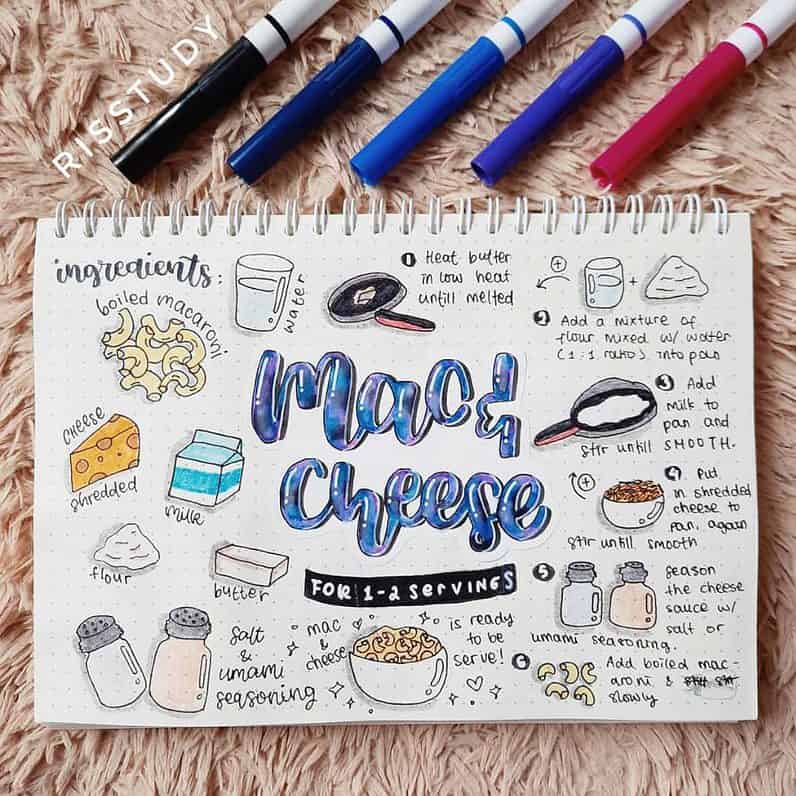 RISSTUDY
ingredients:
boiled macaroni
water
cheese
shredded
milk
flour
butter
salt
&
umami
seasoning
mac &
cheese
FOR 1-2 servings
Mac &
Cheese
1 Heat butter
in low heat
untill melted
2 Add a mixture of
flour mixed w/ water
(1:1 ratio) into pan
3 Add
milk to
pan and
stir untill SMOOTH.
4 Put
in shredded
cheese to
pan, again
stir untill smooth
5 season
the cheese
sauce w/
salt or
umami seasoning.
6 Add boiled mac-
aroni &
slowly
is ready
to be
serve!